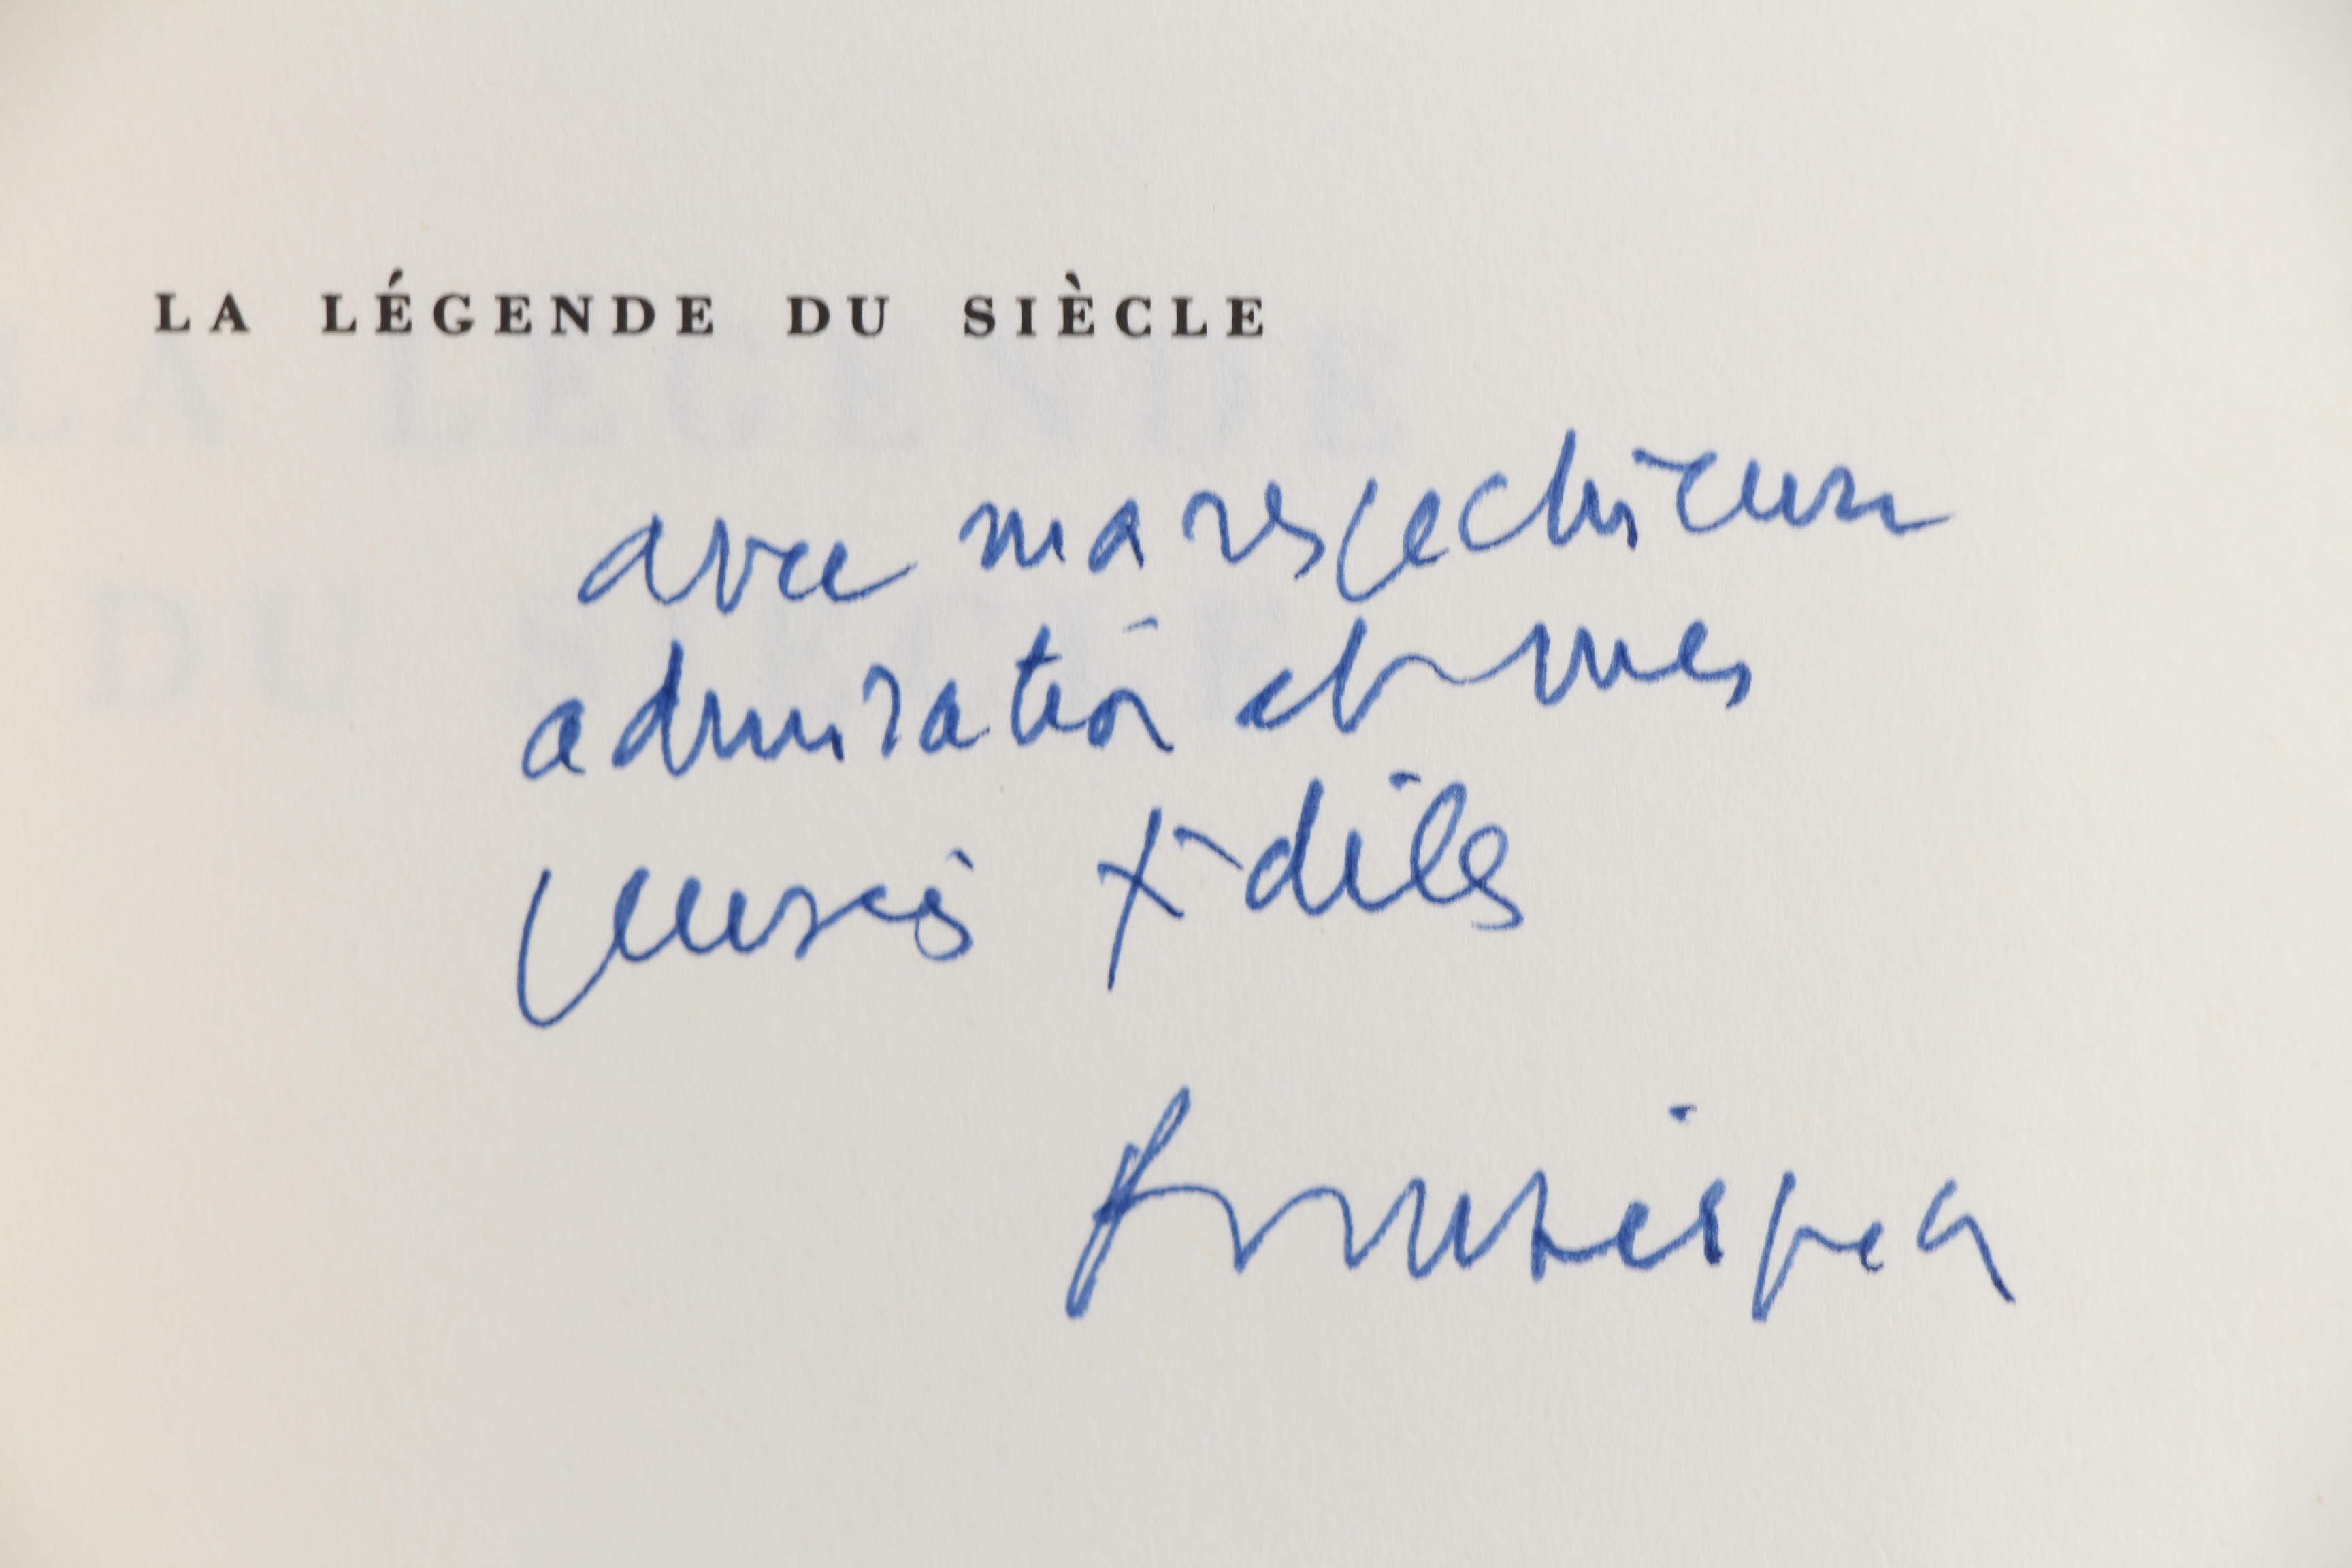 LA LÉGENDE DU SIÈCLE
avec ma respectueuse
admiration et mes
pensées fidèles